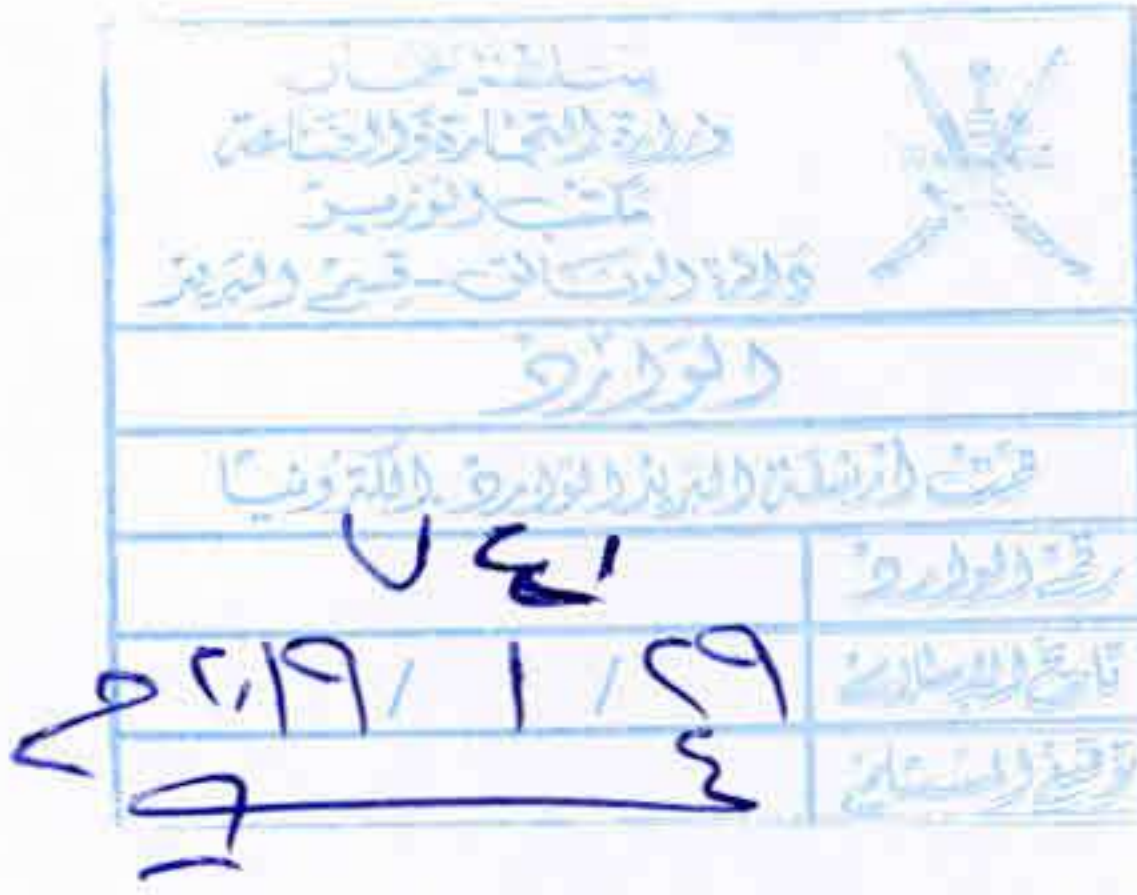 سلطنة عمان
وزارة التجارة والصناعة
مكتب الوزير
دائرة الوثائق - قسم البريد
الوارد
تمت أرشفة البريد الوارد إلكترونيا
رقم الوارد ٧٤١
تاريخ الاستلام ٢٩ / ١ / ٢٠١٩ م
توقيع المستلم